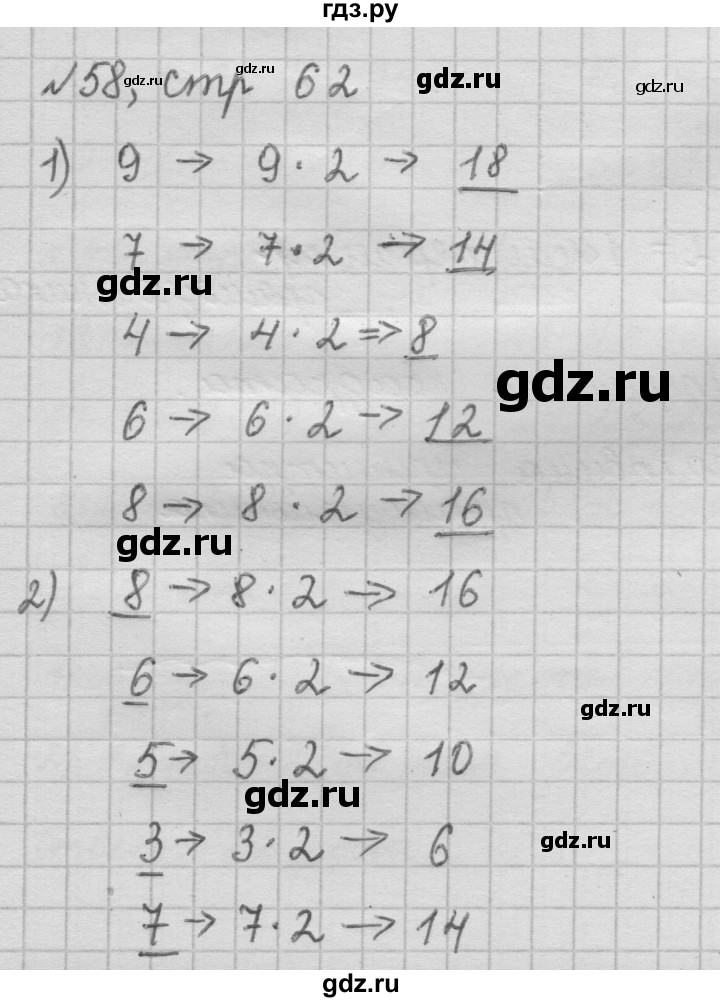 гдз.ру
№58, стр 62
gdz.ru
gdz.ru
gdz.ru
gdz.ru
1) 9 → 9 · 2 → 18
7 → 7 · 2 → 14
gdz.ru
4 → 4 · 2 => 8
gdz.ru
6 → 6 · 2 → 12
8 → 8 · 2 → 16
gdz.ru
2) 8 → 8 · 2 → 16
6 → 6 · 2 → 12
gdz.ru
5 → 5 · 2 → 10
gdz.ru
3 → 3 · 2 → 6
gdz.ru
7 → 7 · 2 → 14
gdz.ru